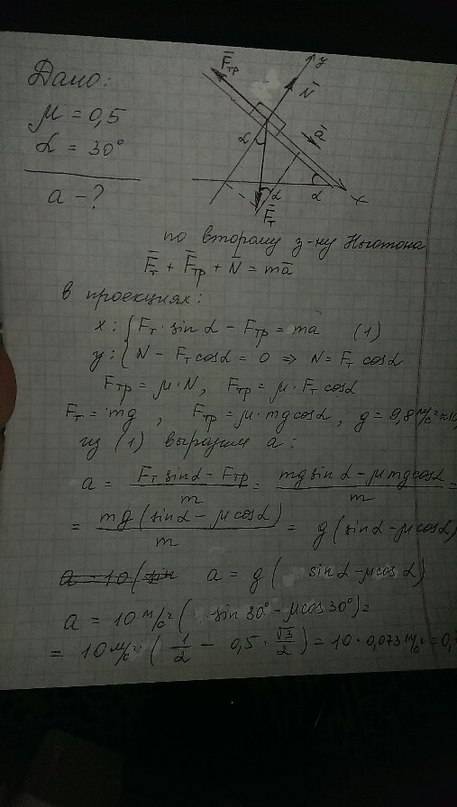 Дано:
μ = 0,5
α = 30°
a - ?
F̅тр
y
N̅
a̅
α
α
α
x
F̅т
по второму з-ну Ньютона
F̅т + F̅тр + N̅ = ma̅
в проекциях:
x: { Fт · sin α – Fтр = ma (1)
y: { N – Fт cos α = 0 ⇒ N = Fт cos α
Fтр = μ · N, Fтр = μ · Fт cos α
Fт = mg, Fтр = μ · mg cos α, g = 9,8 м/с² ≈ 10
из (1) выразим a:
a = (Fт sin α – Fтр)/m = (mg sin α – μ mg cos α)/m =
= mg (sin α – μ cos α)/m = g (sin α – μ cos α)
a = 10 (sin a = g ( sin α – μ cos α)
a = 10 м/с² ( sin 30° – μ cos 30°) =
= 10 м/с² (1/2 – 0,5 · √3/2) = 10 · 0,073 м/с² = 0,